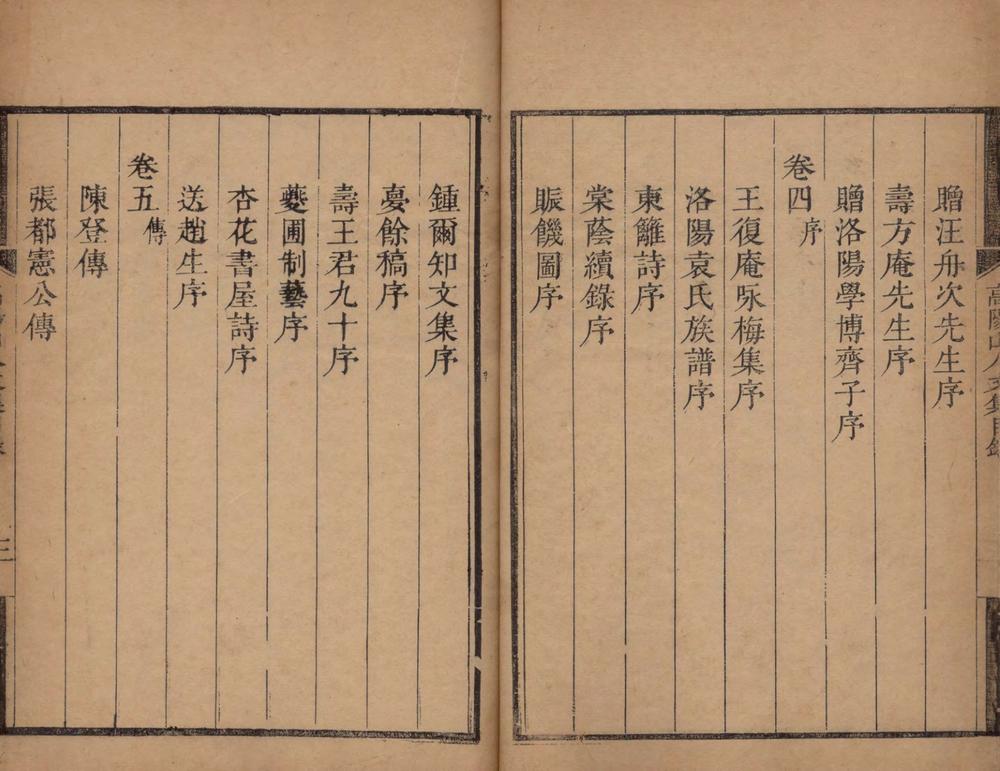 贈汪舟次先生序
壽方庵先生序
贈洛陽學博齊子序
卷四 序
王復庵咏梅集序
洛陽袁氏族譜序
東籬詩序
棠蔭續錄序
賑饑圖序
鍾爾知文集序
憂餘稿序
壽王君九十序
夔圃制藝序
杏花書屋詩序
送趙生序
卷五 傳
陳登傳
張都憲公傳